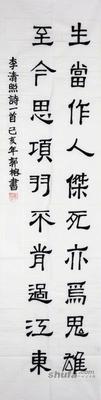 生當作人傑死亦爲鬼雄
至今思項羽不肯過江東
李清照詩一首己亥年郭書